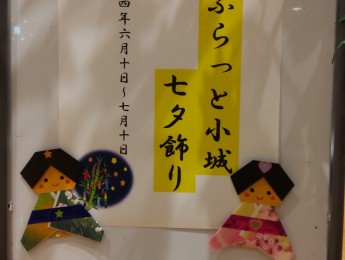 ふらっと小城
七夕飾り
四年六月十日~七月十日